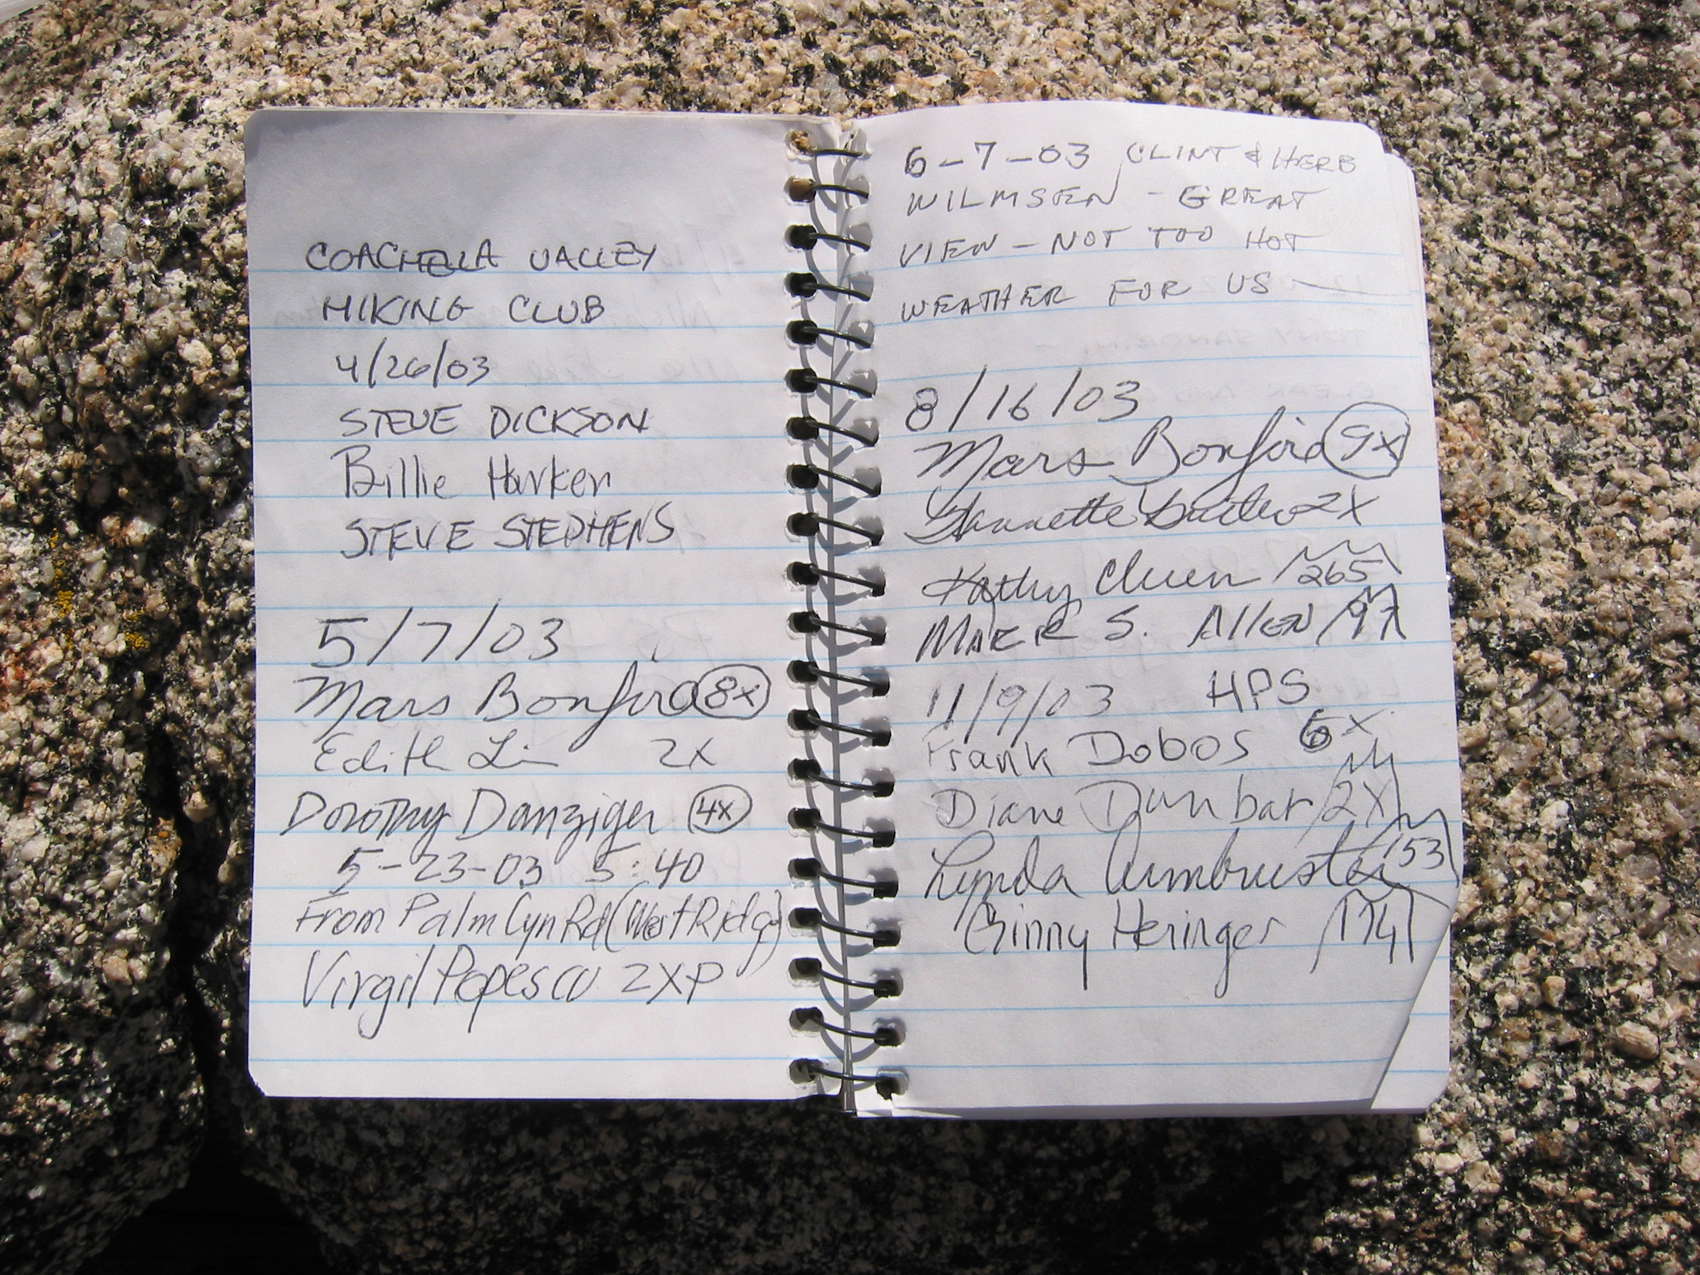 COACHELLA VALLEY
HIKING CLUB
4/26/03
STEVE DICKSON
Billie Harker
STEVE STEPHENS
5/7/03
Mars Bonfire 8x
Edith Li 2x
Dorothy Danziger 4x
5-23-03 5:40
From Palm Cyn Rd (West Ridge)
Virgil Popescu 2XP
6-7-03 CLINT & HERB
WILMSEN - GREAT
VIEW - NOT TOO HOT
WEATHER FOR US
8/16/03
Mars Bonfire 9x
2X
Kathy 265
MARK S. Allen 97
11/9/03 HPS
Frank Dobos 6x
Diane Dunbar 2X
Lynda Armbruster 153
Ginny Heringer 174